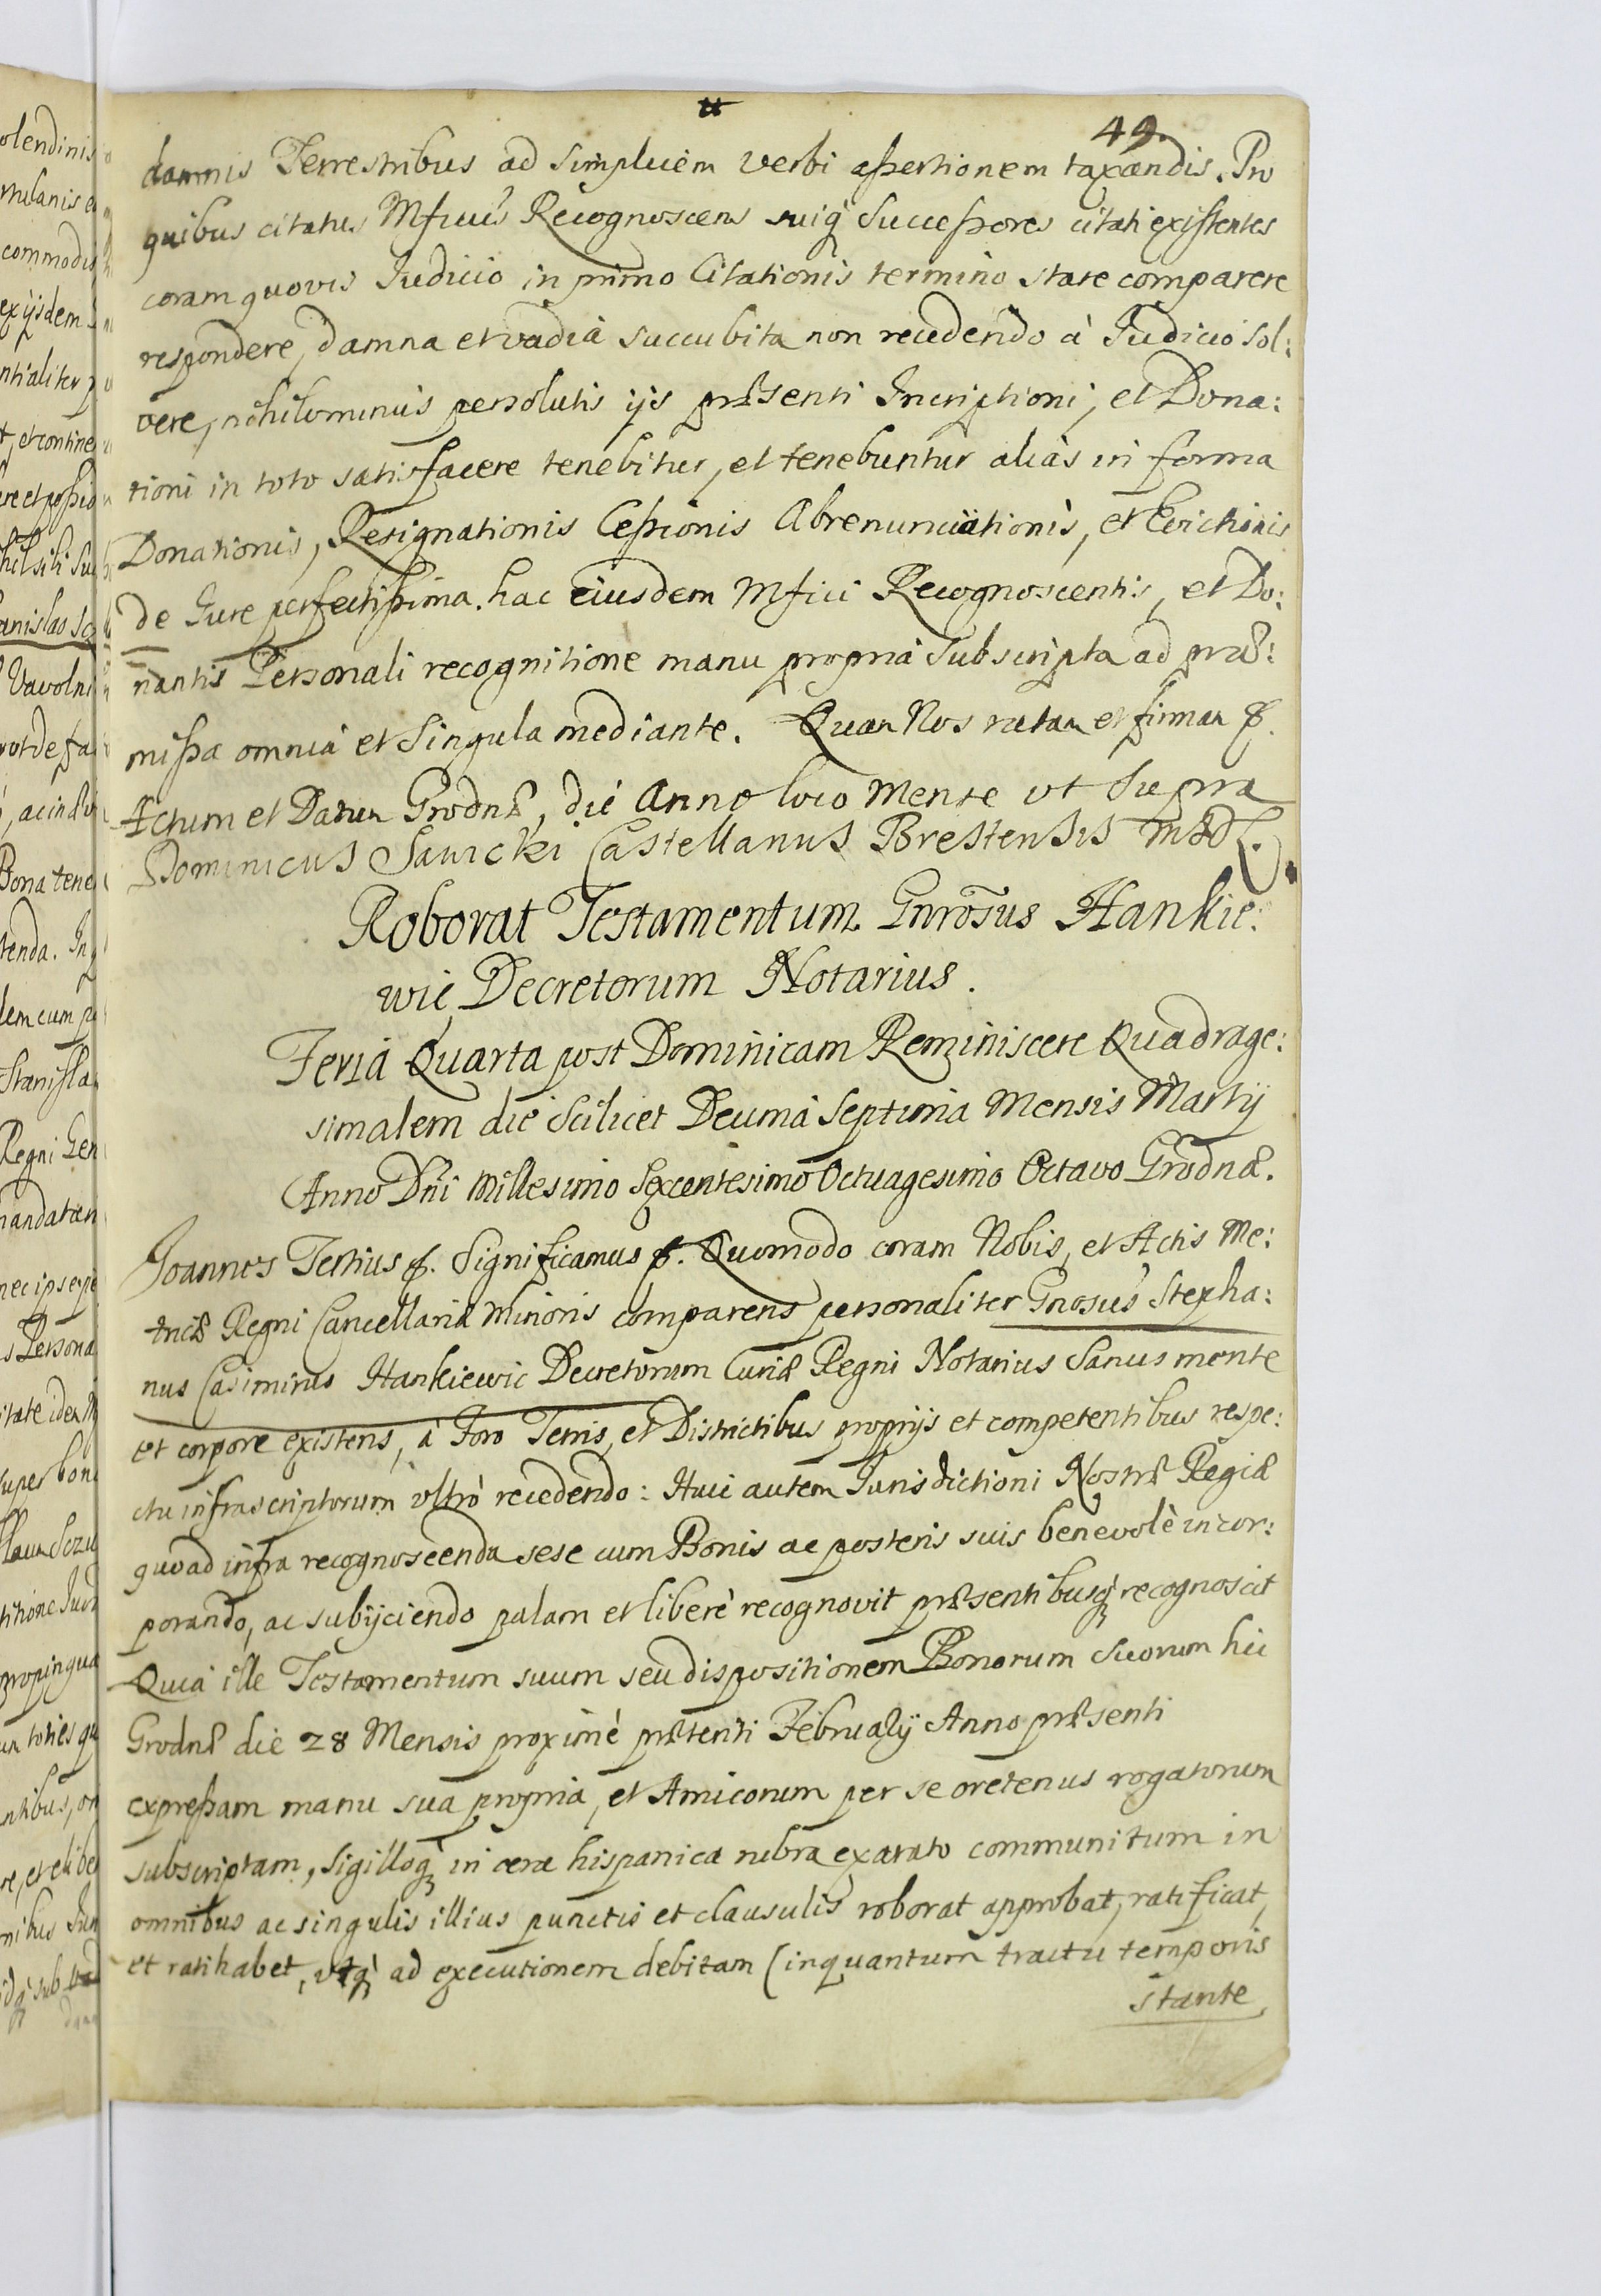 49.
damnis Terrestribus ad simplicem verbi assertionem taxandis. Pro
quibus citatus Mficus Recognoscens suiq̃ Successores citati existentes
coram quovis Judicio in primo Citationis termino stare comparere
respondere, damna et vadia succubita non recedendo à Judicio sol:
vere, nihilominus persolutis ijs præsenti Inscriptioni, et Dona:
tioni in toto satisfacere tenebitur, et tenebuntur alias in forma
Donationis, Resignationis Cessionis Abrenunciationis, et Evictionis
de Jure perfectissima. hac eiusdem Mfici Recognoscentis, et Do:
nantis Personali recognitione manu propria subscripta ad præ:
missa omnia et singula mediante. Quam Nos ratam et firmam &.
Actum et Datum Grodnæ, die Anno loco Mense ut supra
Dominicus Sawicki Castellanus Brestensis
Roborat Testamentum Gnrosus Hankie:
wic Decretorum Notarius.
Feria Quarta post Dominicam Reminiscere Quadrage:
simalem die scilicet Decima Septima Mensis Martij
Anno Dñi Millesimo Sexcentesimo Octuagesimo Octavo Grodnæ.
Joannes Tertius &. Significamus &. Quomodo coram Nobis, et Actis Me:
tricæ Regni Cancellariæ Minoris comparens personaliter Gnosus Stepha:
nus Casimirus Hankiewic Decretorum Curiæ Regni Notarius sanus mente
et corpore existens, à Foro Terris, et Districtibus proprijs et competentibus respe:
ctu infrascriptorum ultrò recedendo: Huic autem Jurisdictioni Nostræ Regiæ
quoad infra recognoscenda sese cum Bonis ac posteris suis benevolè incor:
porando, ac subijciendo palam et liberè recognovit præsentibusq̃ recognoscit
Quia ille Testamentum suum seu dispositionem Bonorum suorum hic
Grodnæ die 28 Mensis proximè præteriti Februarij Anno præsenti
expressam manu sua propria, et Amicorum per se oretenus rogatorum
subscriptam, sigilloq̃ in cera hispanica rubra exarato communitum in
omnibus ac singulis illius punctis et clausulis roborat approbat, ratificat,
et ratihabet, utq̃ ad executionem debitam (inquantum tractu temporis
stante